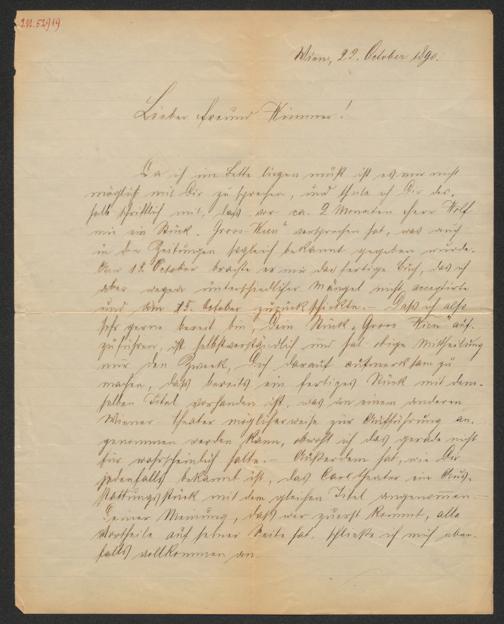 I.N. 52919
Wien, 22. October 1890.
Lieber Freund Kimmer!
Da ich im Bette liegen muß ist es mir nicht
möglich mit Dir zu sprechen, und theile ich Dir des-
halb schriftlich mit, daß vor ca. 2 Monaten Herr Wolf
mir ein Stück „Gross-Wien“ versprochen hat, was auch
in den Zeitungen sogleich bekannt gegeben wurde.
Am 12 October brachte er mir das fertige Buch, das ich
aber wegen unterschiedlicher Mängel nicht acceptirte
und am 15. October zurückschickte. – Daß ich also
sehr gerne bereit bin, Dein Stück „Gross Wien“ auf-
zuführen, ist selbstverständlich und hat obige Mittheilung
nur den Zweck, Dich darauf aufmerksam zu
machen, daß bereits ein fertiges Stück mit dem-
selben Titel vorhanden ist, was an einem anderen
Wiener Theater möglicherweise zur Aufführung an-
genommen werden kann, obwohl ich das gerade nicht
für wahrscheinlich halte. – Außerdem hat, wie Dir
jedenfalls bekannt ist, das Carltheater ein Aus-
stattungsstück mit dem gleichen Titel angenommen –
Deiner Meinung, daß wer zuerst kommt, alle
Vortheile auf seiner Seite hat, schließe ich mich eben-
falls vollkommen an.